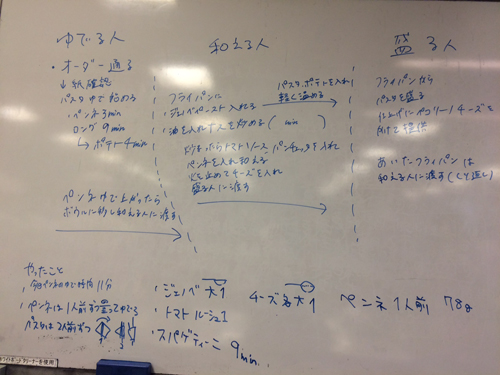 ゆでる人
・オーダー通る
↓紙確認
パスタゆで始める
・ペンネ3min
ロング9min
↳ポテト4min
ペンネゆで上がったら
ボウルに移し和える人に渡す
和える人
フライパンに
ジェノベペースト入れる
油を入れてんにくを炒める ( min )
パスタ、ポテトを入れ
軽く温める
トマトソース、パンチェッタを入れ
ペンネを入れ和える
火を止めてチーズを入れ
盛る人に渡す
盛る人
フライパンから
パスタを盛る
仕上げにペコリーノチーズを
かけて提供
あいたフライパンは
和える人に渡す(くり返し)
やったこと
11分
・ペンネは1人前ずつ ゆでる
パスタは2人前ずつ
・ジェノベ 大1
・トマトルー 1
・スパゲティーニ 9min.
チーズ 大1
ペンネ 1人前 78g
ホワイトボードクリーナーを使用